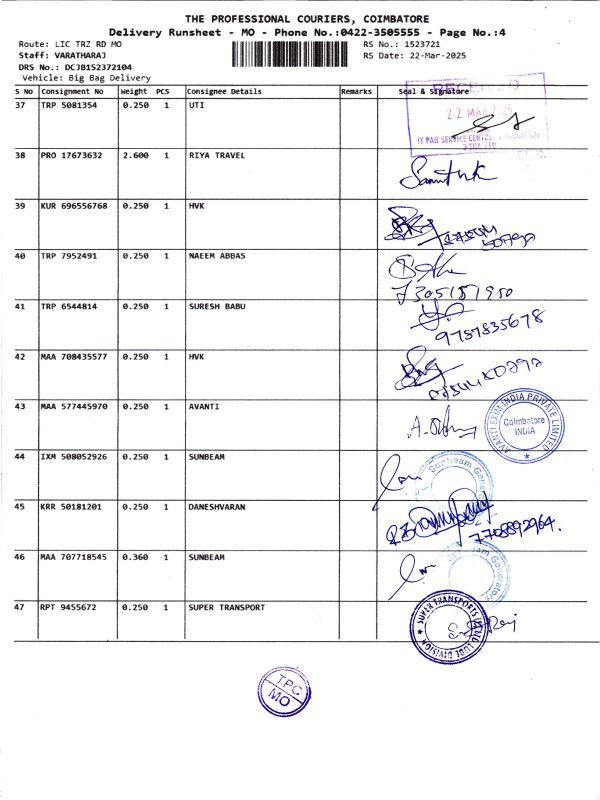 THE PROFESSIONAL COURIERS, COIMBATORE
Delivery Runsheet - MO - Phone No.:0422-3505555 - Page No.:4
Route: LIC TRZ RD MO RS No.: 1523721
Staff: VARATHARAJ RS Date: 22-Mar-2025
DRS No.: DCJB152372104
Vehicle: Big Bag Delivery
S No Consignment No Weight PCS Consignee Details Remarks Seal & Signature
RECEIVED
37 TRP 5081354 0.250 1 UTI
22 MAR
38 PRO 17673632 2.600 1 RIYA TRAVEL
39 KUR 696556768 0.250 1 HVK
40 TRP 7952491 0.250 1 NAEEM ABBAS
7305151950
41 TRP 6544814 0.250 1 SURESH BABU
9787835678
42 MAA 708435577 0.250 1 HVK
43 MAA 577445970 0.250 1 AVANTI
AVANTI EXIM INDIA PRIVATE LIMITED
Coimbatore
INDIA
44 IXM 508052926 0.250 1 SUNBEAM
Sunbeam Generators
45 KRR 50181201 0.250 1 DANESHVARAN
7708892964.
46 MAA 707718545 0.360 1 SUNBEAM
Sunbeam Generators
47 RPT 9455672 0.250 1 SUPER TRANSPORT
SUPER TRANSPORTS
DIVISION
TPC
MO